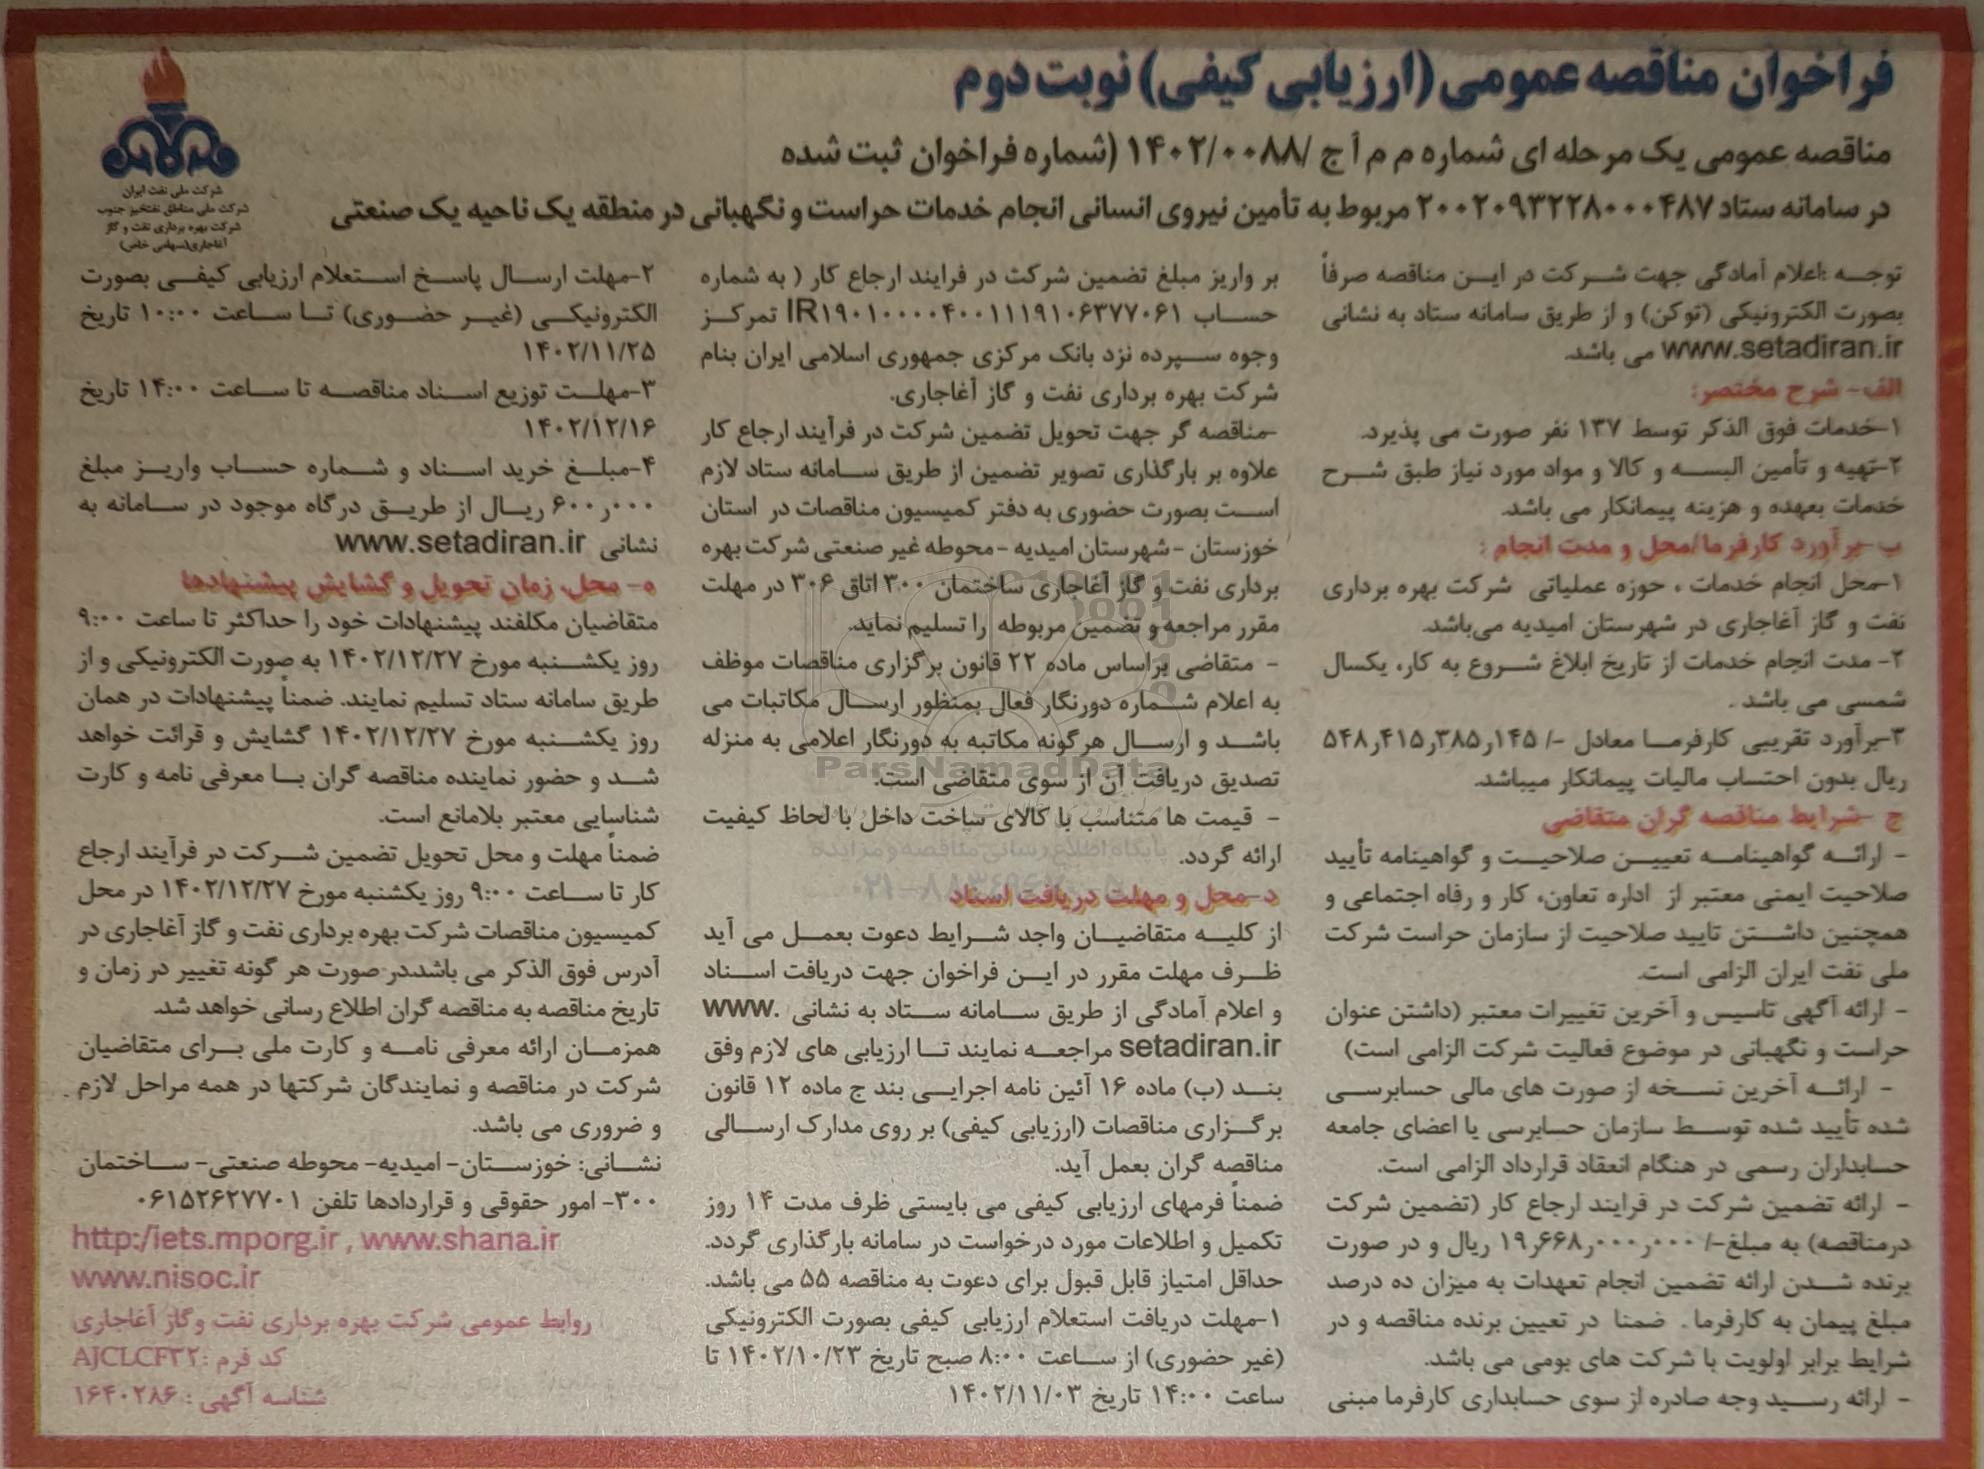 فراخوان مناقصه عمومی (ارزیابی کیفی) نوبت دوم
مناقصه عمومی یک مرحله ای شماره م م آ ج /۱۴۰۲/۰۰۸۸ (شماره فراخوان ثبت شده
در سامانه ستاد ۲۰۰۲۰۹۳۲۲۸۰۰۰۴۸۷ مربوط به تأمین نیروی انسانی انجام خدمات حراست و نگهبانی در منطقه یک ناحیه یک صنعتی
شرکت ملی نفت ایران
شرکت ملی مناطق نفتخیز جنوب
شرکت بهره برداری نفت و گاز
آغاجاری(سهامی خاص)
توجه :اعلام آمادگی جهت شرکت در این مناقصه صرفاً
بصورت الکترونیکی (توکن) و از طریق سامانه ستاد به نشانی
www.setadiran.ir می باشد.
الف- شرح مختصر:
۱-خدمات فوق الذکر توسط ۱۳۷ نفر صورت می پذیرد.
۲-تهیه و تأمین البسه و کالا و مواد مورد نیاز طبق شرح
خدمات بعهده و هزینه پیمانکار می باشد.
ب-برآورد کارفرما/محل و مدت انجام :
۱-محل انجام خدمات ، حوزه عملیاتی شرکت بهره برداری
نفت و گاز آغاجاری در شهرستان امیدیه می‌باشد.
۲- مدت انجام خدمات از تاریخ ابلاغ شروع به کار، یکسال
شمسی می باشد .
۳-برآورد تقریبی کارفرما معادل -/ ۵۴۸٫۴۱۵٫۳۸۵٫۱۴۵
ریال بدون احتساب مالیات پیمانکار میباشد.
ج -شرایط مناقصه گران متقاضی
- ارائه گواهینامه تعیین صلاحیت و گواهینامه تأیید
صلاحیت ایمنی معتبر از اداره تعاون، کار و رفاه اجتماعی و
همچنین داشتن تایید صلاحیت از سازمان حراست شرکت
ملی نفت ایران الزامی است.
- ارائه آگهی تاسیس و آخرین تغییرات معتبر (داشتن عنوان
حراست و نگهبانی در موضوع فعالیت شرکت الزامی است)
- ارائه آخرین نسخه از صورت های مالی حسابرسی
شده تأیید شده توسط سازمان حسابرسی یا اعضای جامعه
حسابداران رسمی در هنگام انعقاد قرارداد الزامی است.
- ارائه تضمین شرکت در فرایند ارجاع کار (تضمین شرکت
درمناقصه) به مبلغ-/ ۱۹٫۶۶۸٫۰۰۰٫۰۰۰ ریال و در صورت
برنده شدن ارائه تضمین انجام تعهدات به میزان ده درصد
مبلغ پیمان به کارفرما . ضمنا در تعیین برنده مناقصه و در
شرایط برابر اولویت با شرکت های بومی می باشد.
- ارائه رسید وجه صادره از سوی حسابداری کارفرما مبنی
بر واریز مبلغ تضمین شرکت در فرایند ارجاع کار ( به شماره
حساب IR۱۹۰۱۰۰۰۰۴۰۰۱۱۱۹۱۰۶۳۷۷۰۶۱ تمرکز
وجوه سپرده نزد بانک مرکزی جمهوری اسلامی ایران بنام
شرکت بهره برداری نفت و گاز آغاجاری.
-مناقصه گر جهت تحویل تضمین شرکت در فرآیند ارجاع کار
علاوه بر بارگذاری تصویر تضمین از طریق سامانه ستاد لازم
است بصورت حضوری به دفتر کمیسیون مناقصات در استان
خوزستان -شهرستان امیدیه -محوطه غیر صنعتی شرکت بهره
برداری نفت و گاز آغاجاری ساختمان ۳۰۰ اتاق ۳۰۶ در مهلت
مقرر مراجعه و تضمین مربوطه را تسلیم نماید.
- متقاضی براساس ماده ۲۲ قانون برگزاری مناقصات موظف
به اعلام شماره دورنگار فعال بمنظور ارسال مکاتبات می
باشد و ارسال هرگونه مکاتبه به دورنگار اعلامی به منزله
تصدیق دریافت آن از سوی متقاضی است.
ParsNamadData
- قیمت ها متناسب با کالای ساخت داخل با لحاظ کیفیت
ارائه گردد.
پایگاه اطلاع رسانی مناقصه و مزایده
د-محل و مهلت دریافت اسناد
از کلیه متقاضیان واجد شرایط دعوت بعمل می آید
ظرف مهلت مقرر در این فراخوان جهت دریافت اسناد
و اعلام آمادگی از طریق سامانه ستاد به نشانی www.
setadiran.ir مراجعه نمایند تا ارزیابی های لازم وفق
بند (ب) ماده ۱۶ آئین نامه اجرایی بند ج ماده ۱۲ قانون
برگزاری مناقصات (ارزیابی کیفی) بر روی مدارک ارسالی
مناقصه گران بعمل آید.
ضمناً فرمهای ارزیابی کیفی می بایستی ظرف مدت ۱۴ روز
تکمیل و اطلاعات مورد درخواست در سامانه بارگذاری گردد.
حداقل امتیاز قابل قبول برای دعوت به مناقصه ۵۵ می باشد.
۱-مهلت دریافت استعلام ارزیابی کیفی بصورت الکترونیکی
(غیر حضوری) از ساعت ۸:۰۰ صبح تاریخ ۱۴۰۲/۱۰/۲۳ تا
ساعت ۱۴:۰۰ تاریخ ۱۴۰۲/۱۱/۰۳
۲-مهلت ارسال پاسخ استعلام ارزیابی کیفی بصورت
الکترونیکی (غیر حضوری) تا ساعت ۱۰:۰۰ تاریخ
۱۴۰۲/۱۱/۲۵
۳-مهلت توزیع اسناد مناقصه تا ساعت ۱۴:۰۰ تاریخ
۱۴۰۲/۱۲/۱۶
۴-مبلغ خرید اسناد و شماره حساب واریز مبلغ
۶۰۰٫۰۰۰ ریال از طریق درگاه موجود در سامانه به
نشانی www.setadiran.ir
ه- محل، زمان تحویل و گشایش پیشنهادها
متقاضیان مکلفند پیشنهادات خود را حداکثر تا ساعت ۹:۰۰
روز یکشنبه مورخ ۱۴۰۲/۱۲/۲۷ به صورت الکترونیکی و از
طریق سامانه ستاد تسلیم نمایند. ضمناً پیشنهادات در همان
روز یکشنبه مورخ ۱۴۰۲/۱۲/۲۷ گشایش و قرائت خواهد
شد و حضور نماینده مناقصه گران با معرفی نامه و کارت
شناسایی معتبر بلامانع است.
ضمناً مهلت و محل تحویل تضمین شرکت در فرآیند ارجاع
کار تا ساعت ۹:۰۰ روز یکشنبه مورخ ۱۴۰۲/۱۲/۲۷ در محل
کمیسیون مناقصات شرکت بهره برداری نفت و گاز آغاجاری در
آدرس فوق الذکر می باشد.در صورت هر گونه تغییر در زمان و
تاریخ مناقصه به مناقصه گران اطلاع رسانی خواهد شد.
همزمان ارائه معرفی نامه و کارت ملی برای متقاضیان
شرکت در مناقصه و نمایندگان شرکتها در همه مراحل لازم
و ضروری می باشد.
نشانی: خوزستان- امیدیه- محوطه صنعتی- ساختمان
۳۰۰- امور حقوقی و قراردادها تلفن ۰۶۱۵۲۶۲۷۷۰۱
http:/iets.mporg.ir , www.shana.ir
www.nisoc.ir
روابط عمومی شرکت بهره برداری نفت وگاز آغاجاری
کد فرم :AJCLCF۳۲
شناسه آگهی : ۱۶۴۰۲۸۶